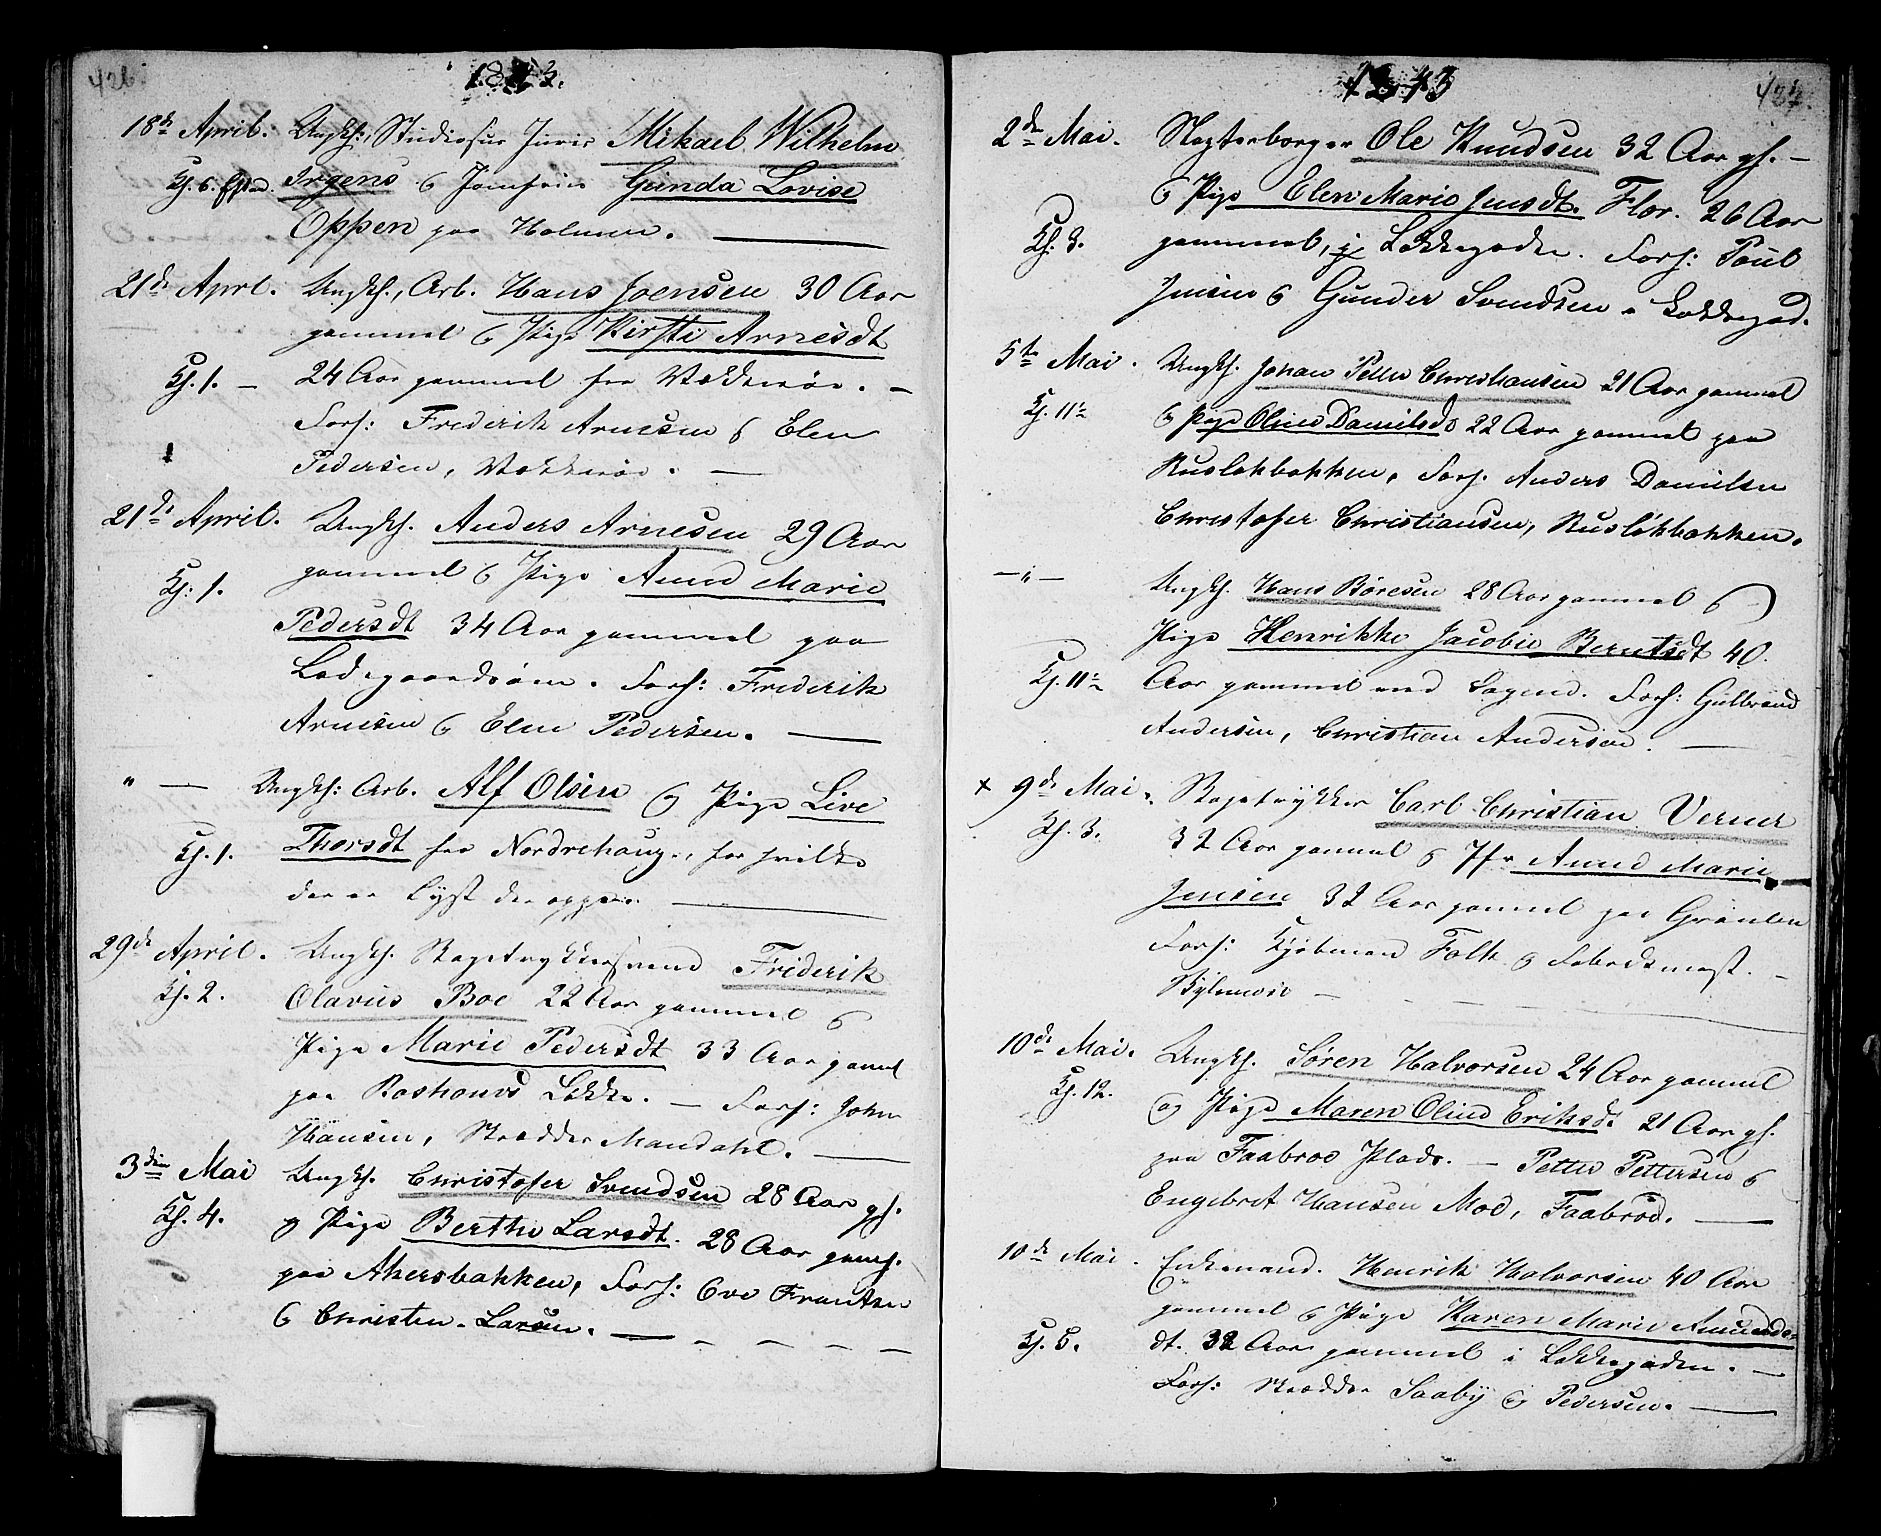 426.
1843.
18de April. Ungk:, Studiosus Juris Mikael Wilhelm
Kj. 6. Irgens & Jomfrue Gunda Lovise
Oppen paa Holmen.
21de Aprl. Ungk:, Arb. Hans Joensen 30 Aar
gammel & Pige Kirsti Arnesdt
Kj. 1. 24 Aar gammel fra Vækkerøe.
Forl: Frederik Arnesen & Elen
Pedersen, Vækkerøe.
21de April. Ungk. Anders Arnesen 29 Aar
gammel & Pige Anne Marie
Kj: 1.
Pedersdt 34 Aar gammel paa
Ladegaardsøen. Forl: Frederik
Arnesen & Elen Pedersen.
" — Ungk: Arb. Alf Olsen & Pige Live
Kj. 1. Thorsdt fra Nordrehoug, for hvilke
der er lyst deroppe.
29de April. Ungk. Frederik
Kj. 2. Olavus Boe 22 Aar gammel &
Pige Marie Pedersdt 33 Aar gamel
paa Løkke. — Forl: John
Hansen, Skrædder Mandahl.
3die Mai Ungk. Christofer Svendsen 28 Aar gl.
Kj. 4. & Pige Berthe Larsdt. 28 Aar gaml.
paa Akersbakken, Forl: Ove Frantsen
& Christen Larsen.
1843
427.
2de Mai. Ole Knudsen 32 Aar gl. —
& Pige Elen Marie Jensdt. Flor. 26 Aar
Kj. 3. gammel, i Løkkegaden. Forl: Poul
Jensen & Gunder Svendsen Løkkegad.
5te Mai. Ungk. Johan Petter Christiansen 21 Aar gammel
Kj. 11 & Pige Oline Danielsd 22 Aar gammel paa
Rusløkbakken, Forl. Anders Danielsen
Christofer Christiansen, Rusløkbakken.
— " — Ungk. Hans Børesen 28 Aar gammel &
Pige Henrikke Jacobie Berntsdt 40.
Kj. 11 Aar gammel ved Sagene. Forl: Gulbrand
Andersen, Christian Andersen.
x 9de Mai. Bogtrykker Carl Christian Verner
Kj. 3. 32 Aar gammel & Jfr Anne Marie
Jensen 32 Aar gammel paa Grønlen
Forl: Kjøbmand Falk &
10de Mai. Ungk. Søren Halvorsen 24 Aar gammel
Kj. 12. og Pige Maren Oline Eriksd. 21 Aar gl.
paa Faabroe Plads. — Petter Pettersen &
Engebret Hansen Moe, Faabroe.
10de Mai. Enkemand. Henrik Halvorsen 40 Aar
gammel & Pige Karen Marie Amunds-
Kj. 5. dt. 32 Aar gammel i Løkkegaden.
Forl: Skrædder Saaby og Pedersen.